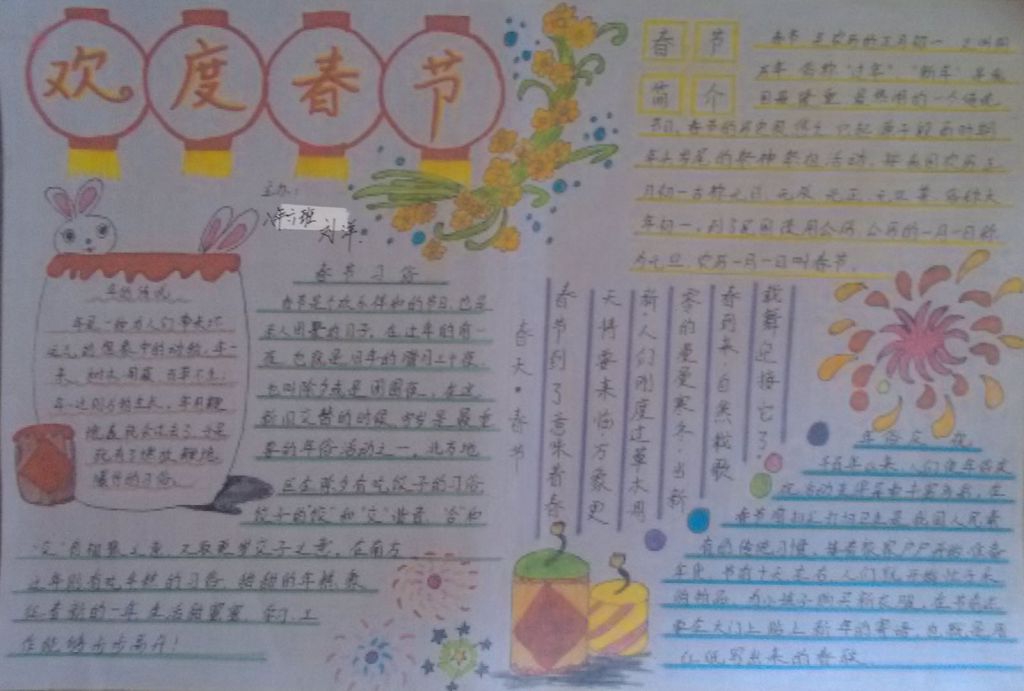 欢度春节
主办:
年六班
刘洋
春节简介
春节是农历的正月初一,又叫阴
历年,俗称"过年""新年"是我
国最隆重、最热闹的一个传统
节日。春节的历史很悠久,它起源于殷商时期
年头岁尾的祭神祭祖活动。按我国农历正
月初一古称元日、元辰、元正、元旦等,俗称大
年初一,到了民国使用公历,公历的一月一日称
为元旦,农历一月一日叫春节。
年的传说
年是一种为人们带来坏
春节习俗
春节是个欢乐祥和的节日,也是
亲人团聚的日子。在过年的前一
夜,也就是旧年的腊月三十夜,
也叫除夕或是团圆夜。在这
新旧交替的时候,守岁是最重
要的年俗活动之一。北方地
区在除夕有吃饺子的习俗
饺子的"饺"和"交"谐音,"合"和
"交"有相聚之意,又取更岁交子之意。在南方
过年则有吃年糕的习俗,甜甜的年糕象
征着新的一年生活甜蜜蜜,学习、工
作能够步步高升!
春天·春节
春节到了意味着春
天将要来临,万象更
新,人们刚度过草木凋
零的漫漫寒冬,当新
春到来,自然载歌
载舞迎接它了
千百年以来,人们使年俗庆
祝活动变得异常丰富多彩,在
春节前扫尘打扫卫生是我国人民素
有的传统习惯。接着家家户户开始准备
年货,节前十天左右,人们就开始忙于采
购物品,为小孩子购买新衣服,在节前还
要在大门上贴上新年的寄语,也就是用
红纸写出来的春联